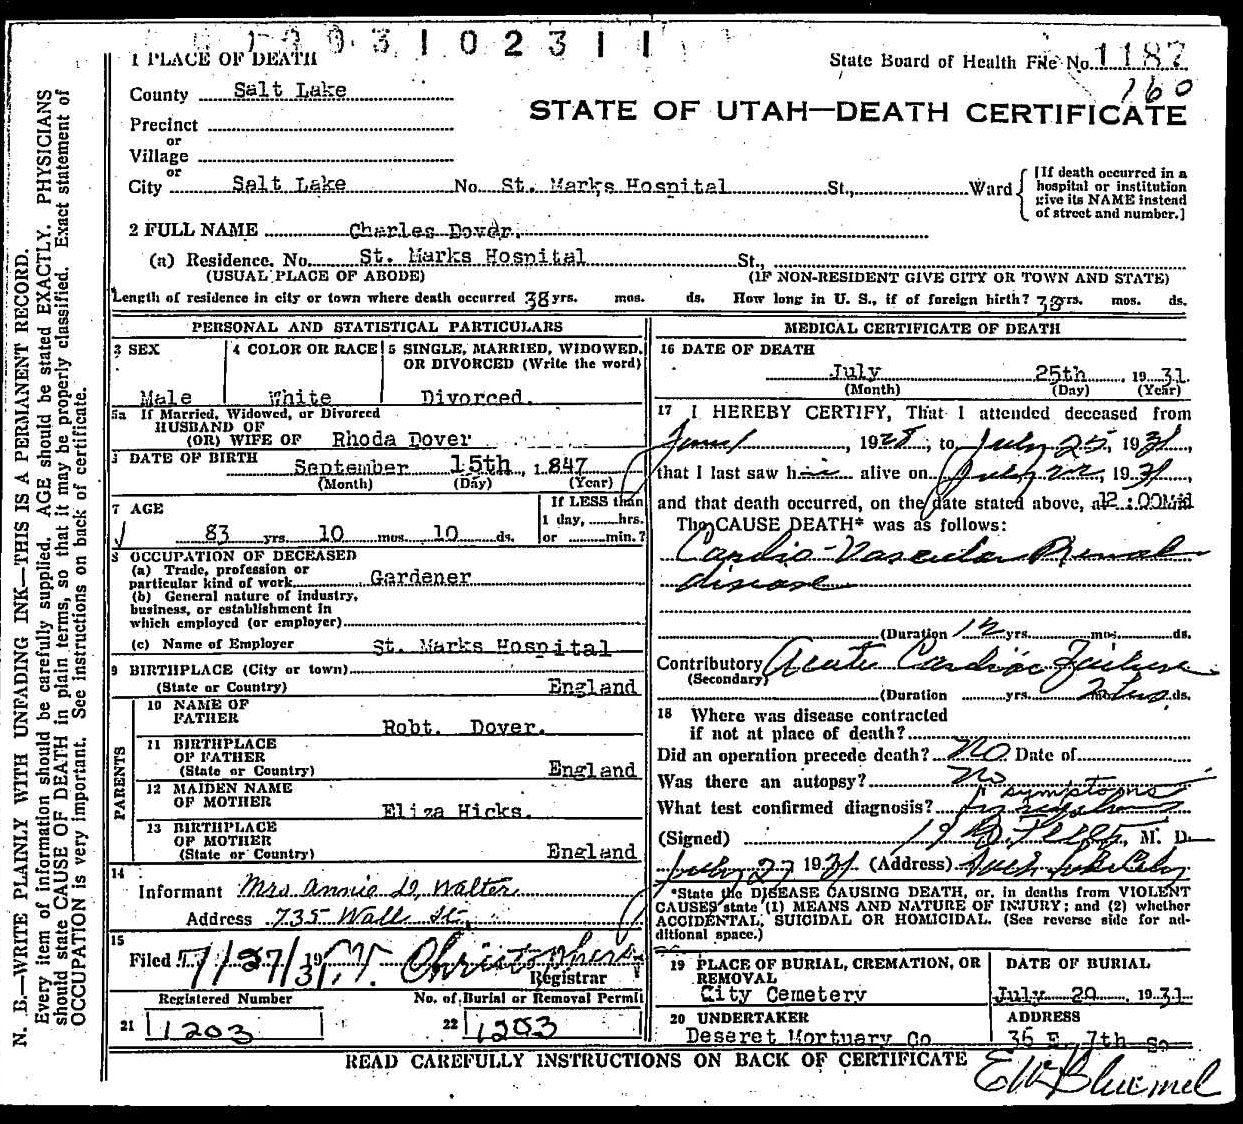 1 9 3 1 0 2 3 1 1
1 PLACE OF DEATH
State Board of Health File No. 1187
160
County Salt Lake
STATE OF UTAH—DEATH CERTIFICATE
Precinct
or
Village
or
City Salt Lake No. St. Marks Hospital St., Ward
[If death occurred in a hospital or institution give its NAME instead of street and number.]
2 FULL NAME Charles Dover.
(a) Residence. No. St. Marks Hospital St.,
(USUAL PLACE OF ABODE) (IF NON-RESIDENT GIVE CITY OR TOWN AND STATE)
Length of residence in city or town where death occurred 38 yrs. mos. ds. How long in U. S., if of foreign birth? 38 yrs. mos. ds.
PERSONAL AND STATISTICAL PARTICULARS
3 SEX
4 COLOR OR RACE
5 SINGLE, MARRIED, WIDOWED, OR DIVORCED (Write the word)
Male White Divorced.
5a If Married, Widowed, or Divorced
HUSBAND OF
(OR) WIFE OF Rhoda Dover
DATE OF BIRTH September 15th, 1847
(Month) (Day) (Year)
7 AGE
83 yrs. 10 mos. 10 ds.
If LESS than
1 day, hrs.
or min.?
8 OCCUPATION OF DECEASED
(a) Trade, profession or
particular kind of work Gardener
(b) General nature of industry,
business, or establishment in
which employed (or employer)
(c) Name of Employer St. Marks Hospital
9 BIRTHPLACE (City or town)
(State or Country) England
PARENTS
10 NAME OF
FATHER Robt. Dover.
11 BIRTHPLACE
OF FATHER
(State or Country) England
12 MAIDEN NAME
OF MOTHER Eliza Hicks.
13 BIRTHPLACE
OF MOTHER
(State or Country) England
14
Informant Mrs Annie D, Walter
Address 735 Wall St.
15
Filed 7/27/31 Christophers
Registrar
Registered Number
21 1203
No. of Burial or Removal Permit
22 1203
MEDICAL CERTIFICATE OF DEATH
16 DATE OF DEATH
July 25th, 1931
(Month) (Day) (Year)
17 I HEREBY CERTIFY, That I attended deceased from
1928, to July 25, 1931,
that I last saw him alive on July 22, 1931,
and that death occurred, on the date stated above, at 12:00Mid
The CAUSE DEATH* was as follows:
Cardio-Vascular Renal
disease
(Duration 12 yrs. mos. ds.
Contributory Acute Cardiac Failure
(Secondary)
(Duration yrs. ds.
18 Where was disease contracted
if not at place of death?
Did an operation precede death? No Date of
Was there an autopsy? No
What test confirmed diagnosis? symptoms
(Signed) M. D.
July 27 1931 (Address) Salt Lake City
*State the DISEASE CAUSING DEATH, or, in deaths from VIOLENT
CAUSES state (1) MEANS AND NATURE OF INJURY; and (2) whether
ACCIDENTAL, SUICIDAL OR HOMICIDAL. (See reverse side for ad-
ditional space.)
19 PLACE OF BURIAL, CREMATION, OR
REMOVAL
City Cemetery
DATE OF BURIAL
July 29, 1931
20 UNDERTAKER
Deseret Mortuary Co
ADDRESS
36 E. 7th So
READ CAREFULLY INSTRUCTIONS ON BACK OF CERTIFICATE
N. B.—WRITE PLAINLY WITH UNFADING INK—THIS IS A PERMANENT RECORD.
Every item of information should be carefully supplied. AGE should be stated EXACTLY. PHYSICIANS
should state CAUSE OF DEATH in plain terms, so that it may be properly classified. Exact statement of
OCCUPATION is very important. See instructions on back of certificate.